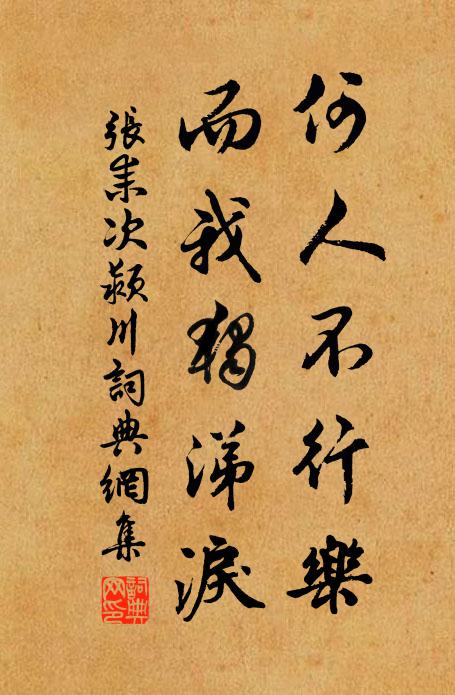 何人不行樂
而我獨涕淚
張耒次潁川詞典網集
詞典网印